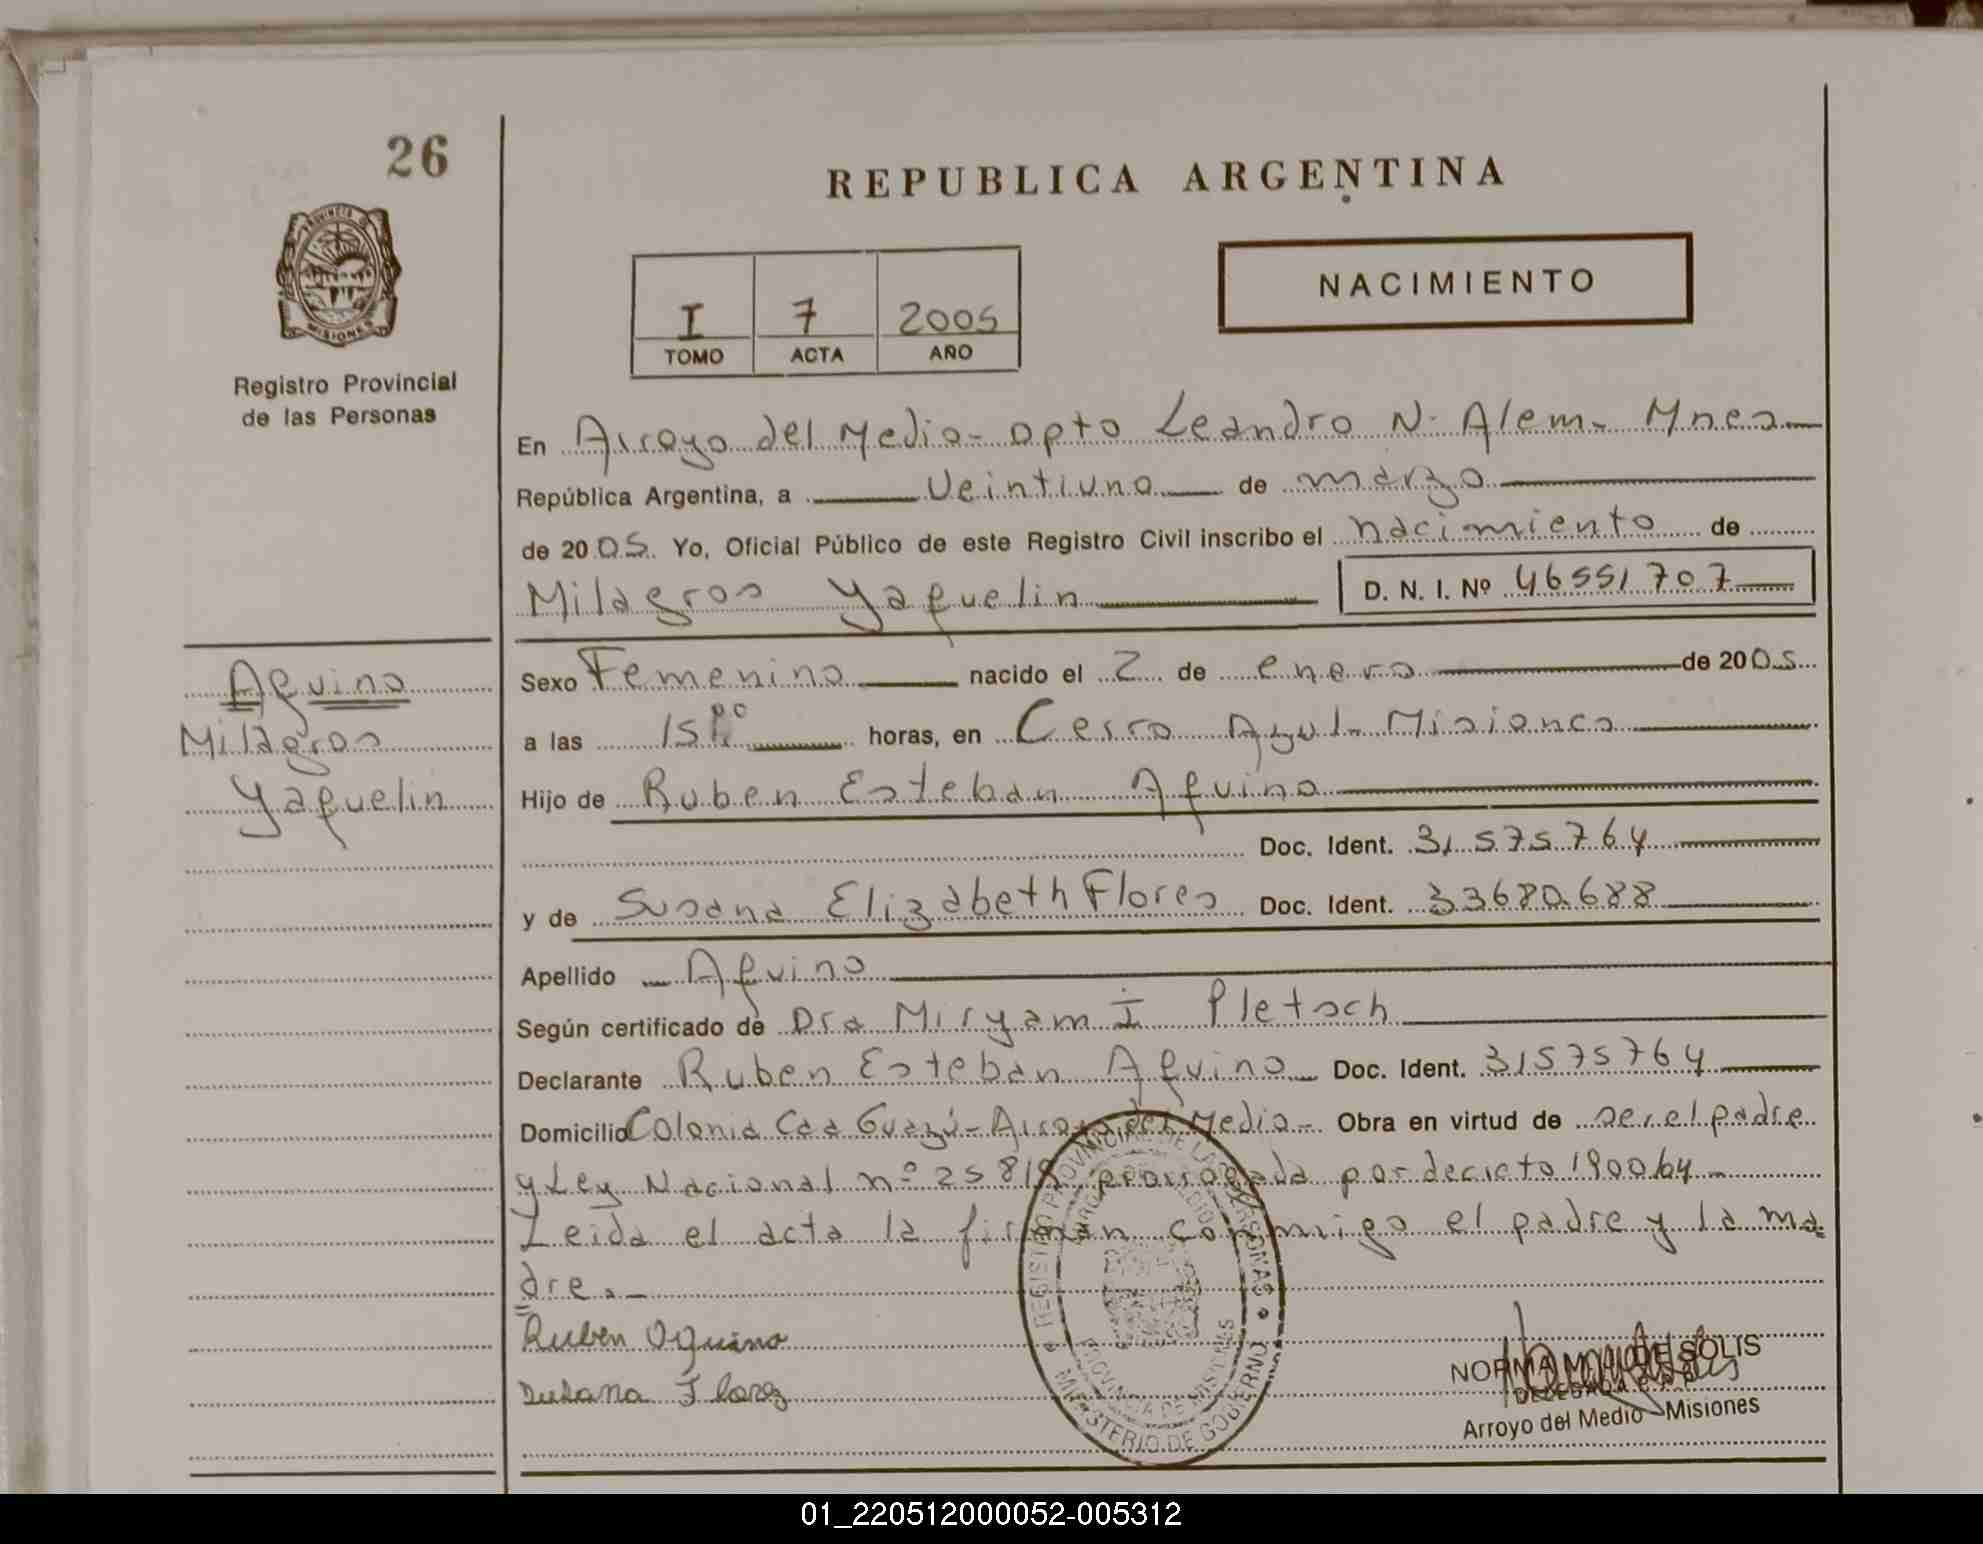 26
REPUBLICA ARGENTINA
NACIMIENTO
I 7 2005
TOMO ACTA AÑO
MISIONES
Registro Provincial
de las Personas
En Arroyo del Medio - Dpto Leandro N. Alem - Mnes
República Argentina, a Veintiuno de marzo
de 2005. Yo, Oficial Público de este Registro Civil inscribo el nacimiento de
Milagros Yaquelin D. N. I. Nº 46551707
Aquino
Milagros
Yaquelin
Sexo Femenino nacido el 2 de enero de 2005
a las 15 horas, en Cerro Azul - Misiones
Hijo de Ruben Esteban Aquino
Doc. Ident. 31575764
y de Susana Elizabeth Flores Doc. Ident. 33680688
Apellido Aquino
Según certificado de Dra Miryam I Pletsch
Declarante Ruben Esteban Aquino Doc. Ident. 31575764
Domicilio Colonia Caa Guazú - Arroyo del Medio - Obra en virtud de ser el padre
y Ley Nacional nº 25819 prorrogada por decreto 1900/04
Leida el acta la firman conmigo el padre y la ma
dre.
Ruben Aquino
Susana Florez
REGISTRO PROVINCIAL DE LAS PERSONAS
PROVINCIA DE MISIONES
MINISTERIO DE GOBIERNO
NORMA DE SOLIS
DELEGADA
Arroyo del Medio - Misiones
01_220512000052-005312